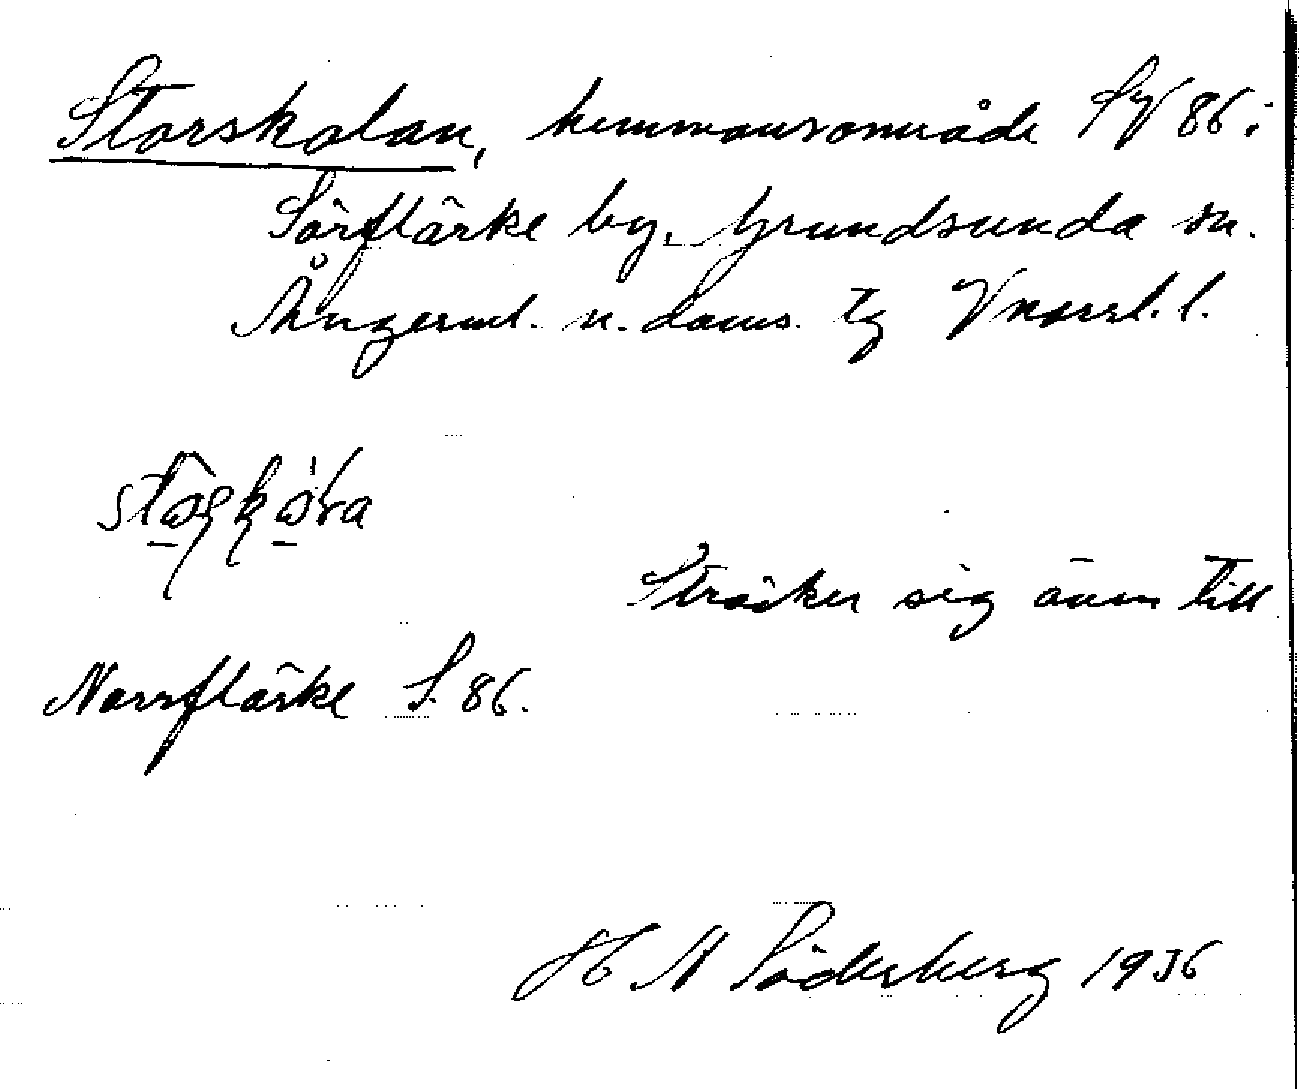 Storskalan, hemmansområde SV 86 i
Sörflärke by, Grundsunda sn.
Ångerml. n. doms. tg Vnorrl. l.
Sträcker sig även till
Norrflärke S. 86.
H N Söderberg 1936